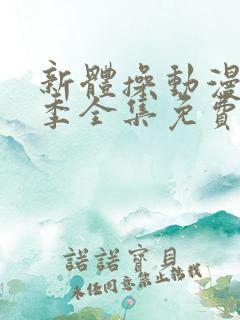 新體操動漫
季全集免費
諾諾寶貝
未经同意禁止转载